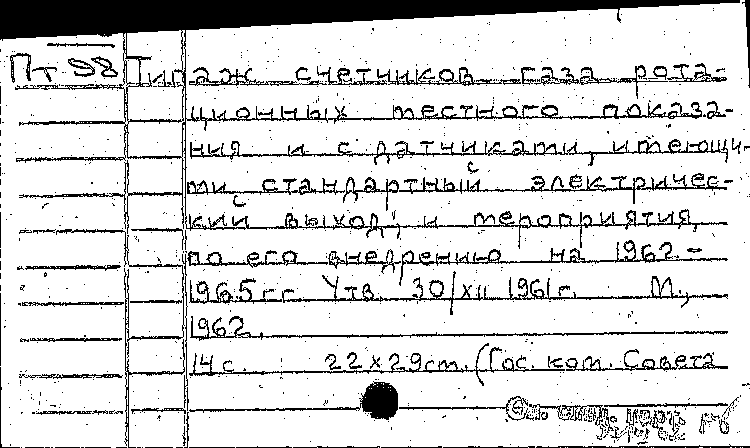 Пт 98 Типаж счетчиков газа рота-
ционных местного показа-
ния и с датчиками, имеющи-
ми стандартный электричес-
кий выход, и мероприятия
по его внедрению на 1962-
1965 гг. Утв. 30/XII 1961 г. М.,
1962.
14 с. 22 х 29 см. (Гос. ком. Совета
См. след. карт.